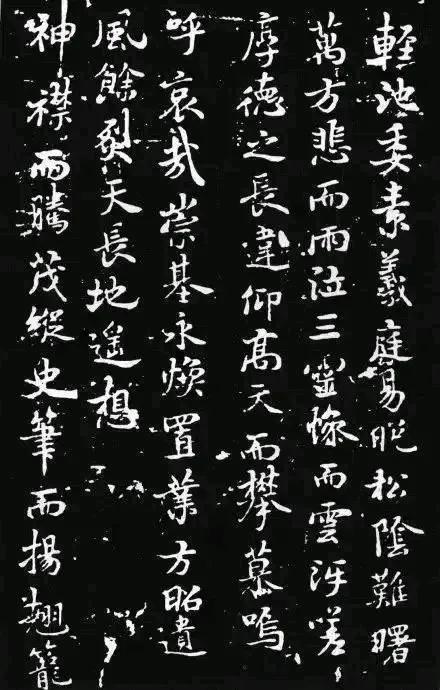 輕池委素羲應易晚松陰難曙
萬方悲而雨泣三靈慘而雲沍嗟
厚德之長違仰高天而攀慕嗚
呼哀哉崇基永煥置業方昭遺
風餘烈天長地遥想
神襟而騰茂縱史筆而揚翹籠